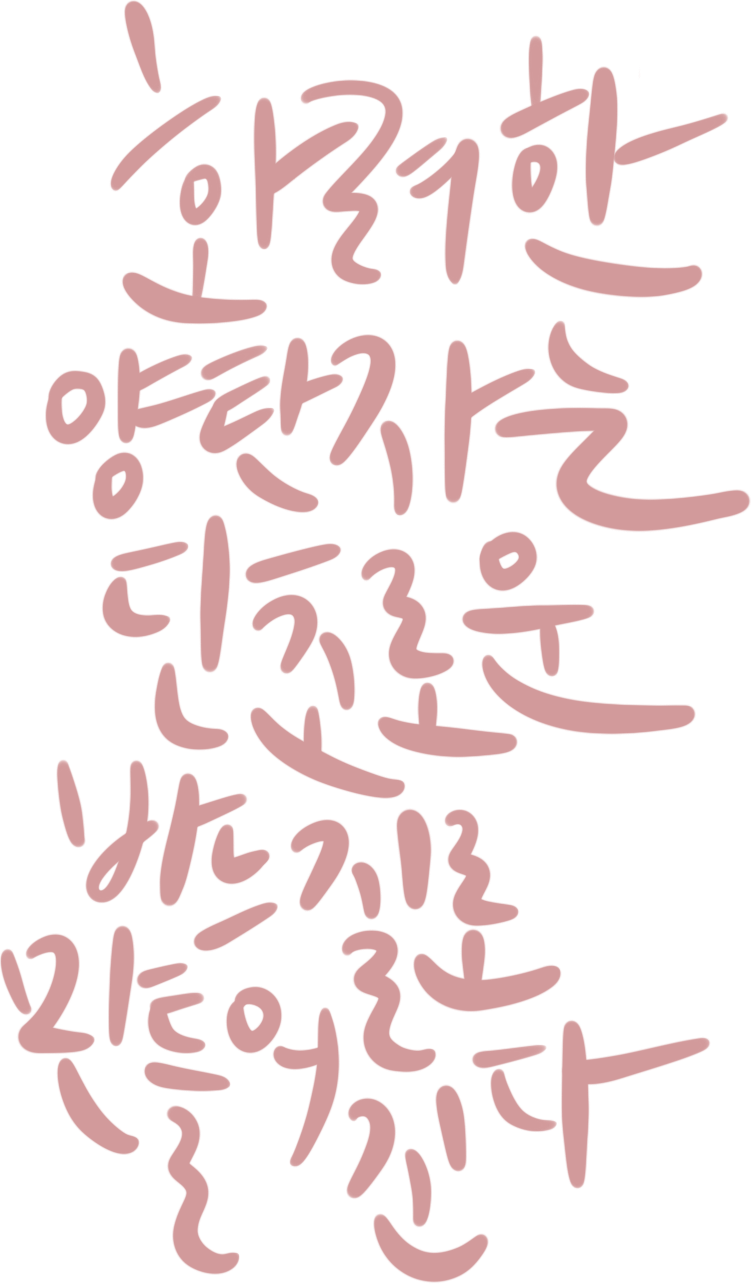 화려한
양탄자는
단조로운
바느질로
만들어진다